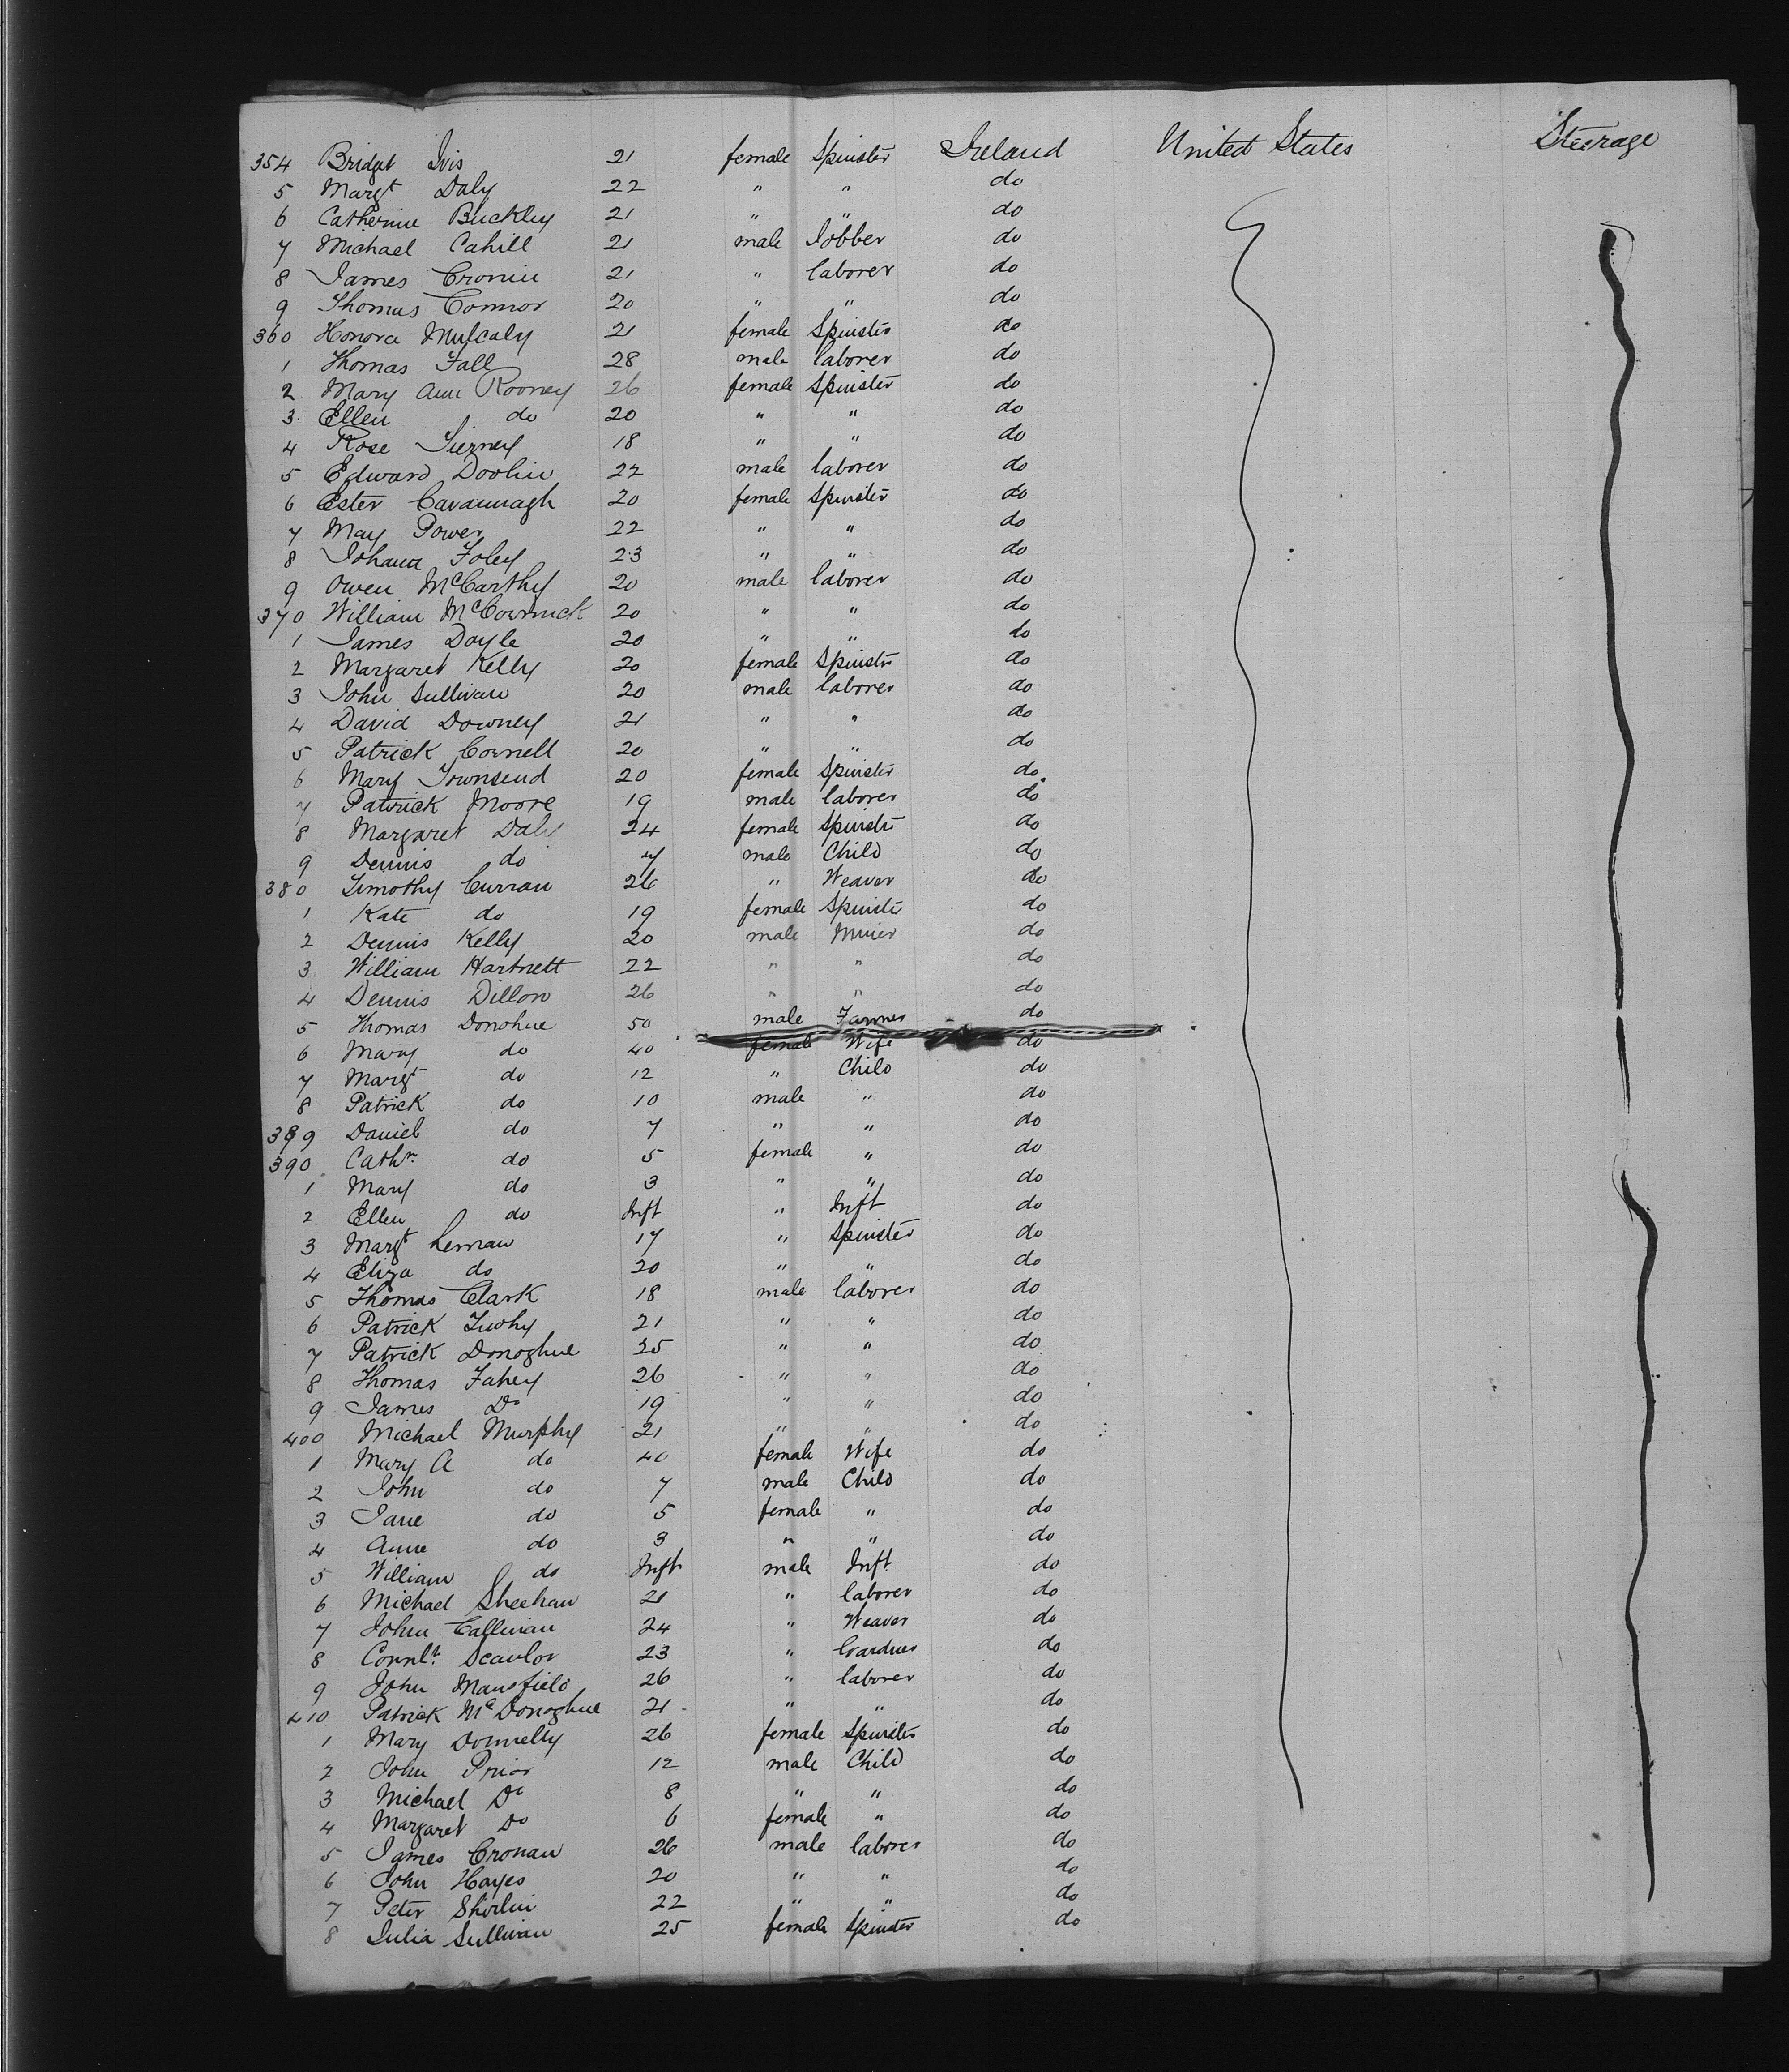 354 Bridget Ivis 21 female Spinster Ireland United States Steerage
5 Margt Daly 22 " " do
6 Catherine Buckley 21 " " do
7 Michael Cahill 21 male Jobber do
8 James Cronin 21 " laborer do
9 Thomas Connor 20 " " do
360 Honora Mulcaly 21 female Spinster do
1 Thomas Fall 28 male laborer do
2 Mary Ann Rooney 26 female Spinster do
3 Ellen do 20 " " do
4 Rose Tierney 18 " " do
5 Edward Doolin 22 male laborer do
6 Ester Cavannagh 20 female Spinster do
7 May Power 22 " " do
8 Johana Foley 23 " " do
9 Owen McCarthy 20 male laborer do
370 William McCormick 20 " " do
1 James Doyle 20 " " do
2 Margaret Kelly 20 female Spinster do
3 John Sullivan 20 male laborer do
4 David Downey 21 " " do
5 Patrick Connell 20 " " do
6 Mary Townsend 20 female Spinster do
7 Patrick Moore 19 male laborer do
8 Margaret Daly 24 female Spinster do
9 Dennis do 7 male Child do
380 Timothy Curran 26 " Weaver do
1 Kate do 19 female Spinster do
2 Dennis Kelly 20 male Miner do
3 William Hartnett 22 " " do
4 Dennis Dillon 26 " " do
5 Thomas Donohue 50 male Farmer do
6 Mary do 40 female Wife do
7 Margt do 12 " Child do
8 Patrick do 10 male " do
389 Daniel do 7 " " do
390 Cathn do 5 female " do
1 Mary do 3 " " do
2 Ellen do Inft " Inft do
3 Margt Lernan 17 " Spinster do
4 Eliza do 20 " " do
5 Thomas Clark 18 male laborer do
6 Patrick Tuohy 21 " " do
7 Patrick Donoghue 35 " " do
8 Thomas Fahey 26 " " do
9 James Do 19 " " do
400 Michael Murphy 21 " " do
1 Mary A do 40 female Wife do
2 John do 7 male Child do
3 Jane do 5 female " do
4 Anne do 3 " " do
5 William do Inft male Inft do
6 Michael Sheehan 21 " laborer do
7 John Callinan 24 " Weaver do
8 Cornls Scanlon 23 " Gardner do
9 John Mansfield 26 " laborer do
410 Patrick McDonoghue 21 " " do
1 Mary Donnelly 26 female Spinster do
2 John Prior 12 male Child do
3 Michael Do 8 " " do
4 Margaret Do 6 female " do
5 James Cronan 26 male laborer do
6 John Hayes 20 " " do
7 Peter Sherlin 22 " " do
8 Julia Sullivan 25 female Spinster do